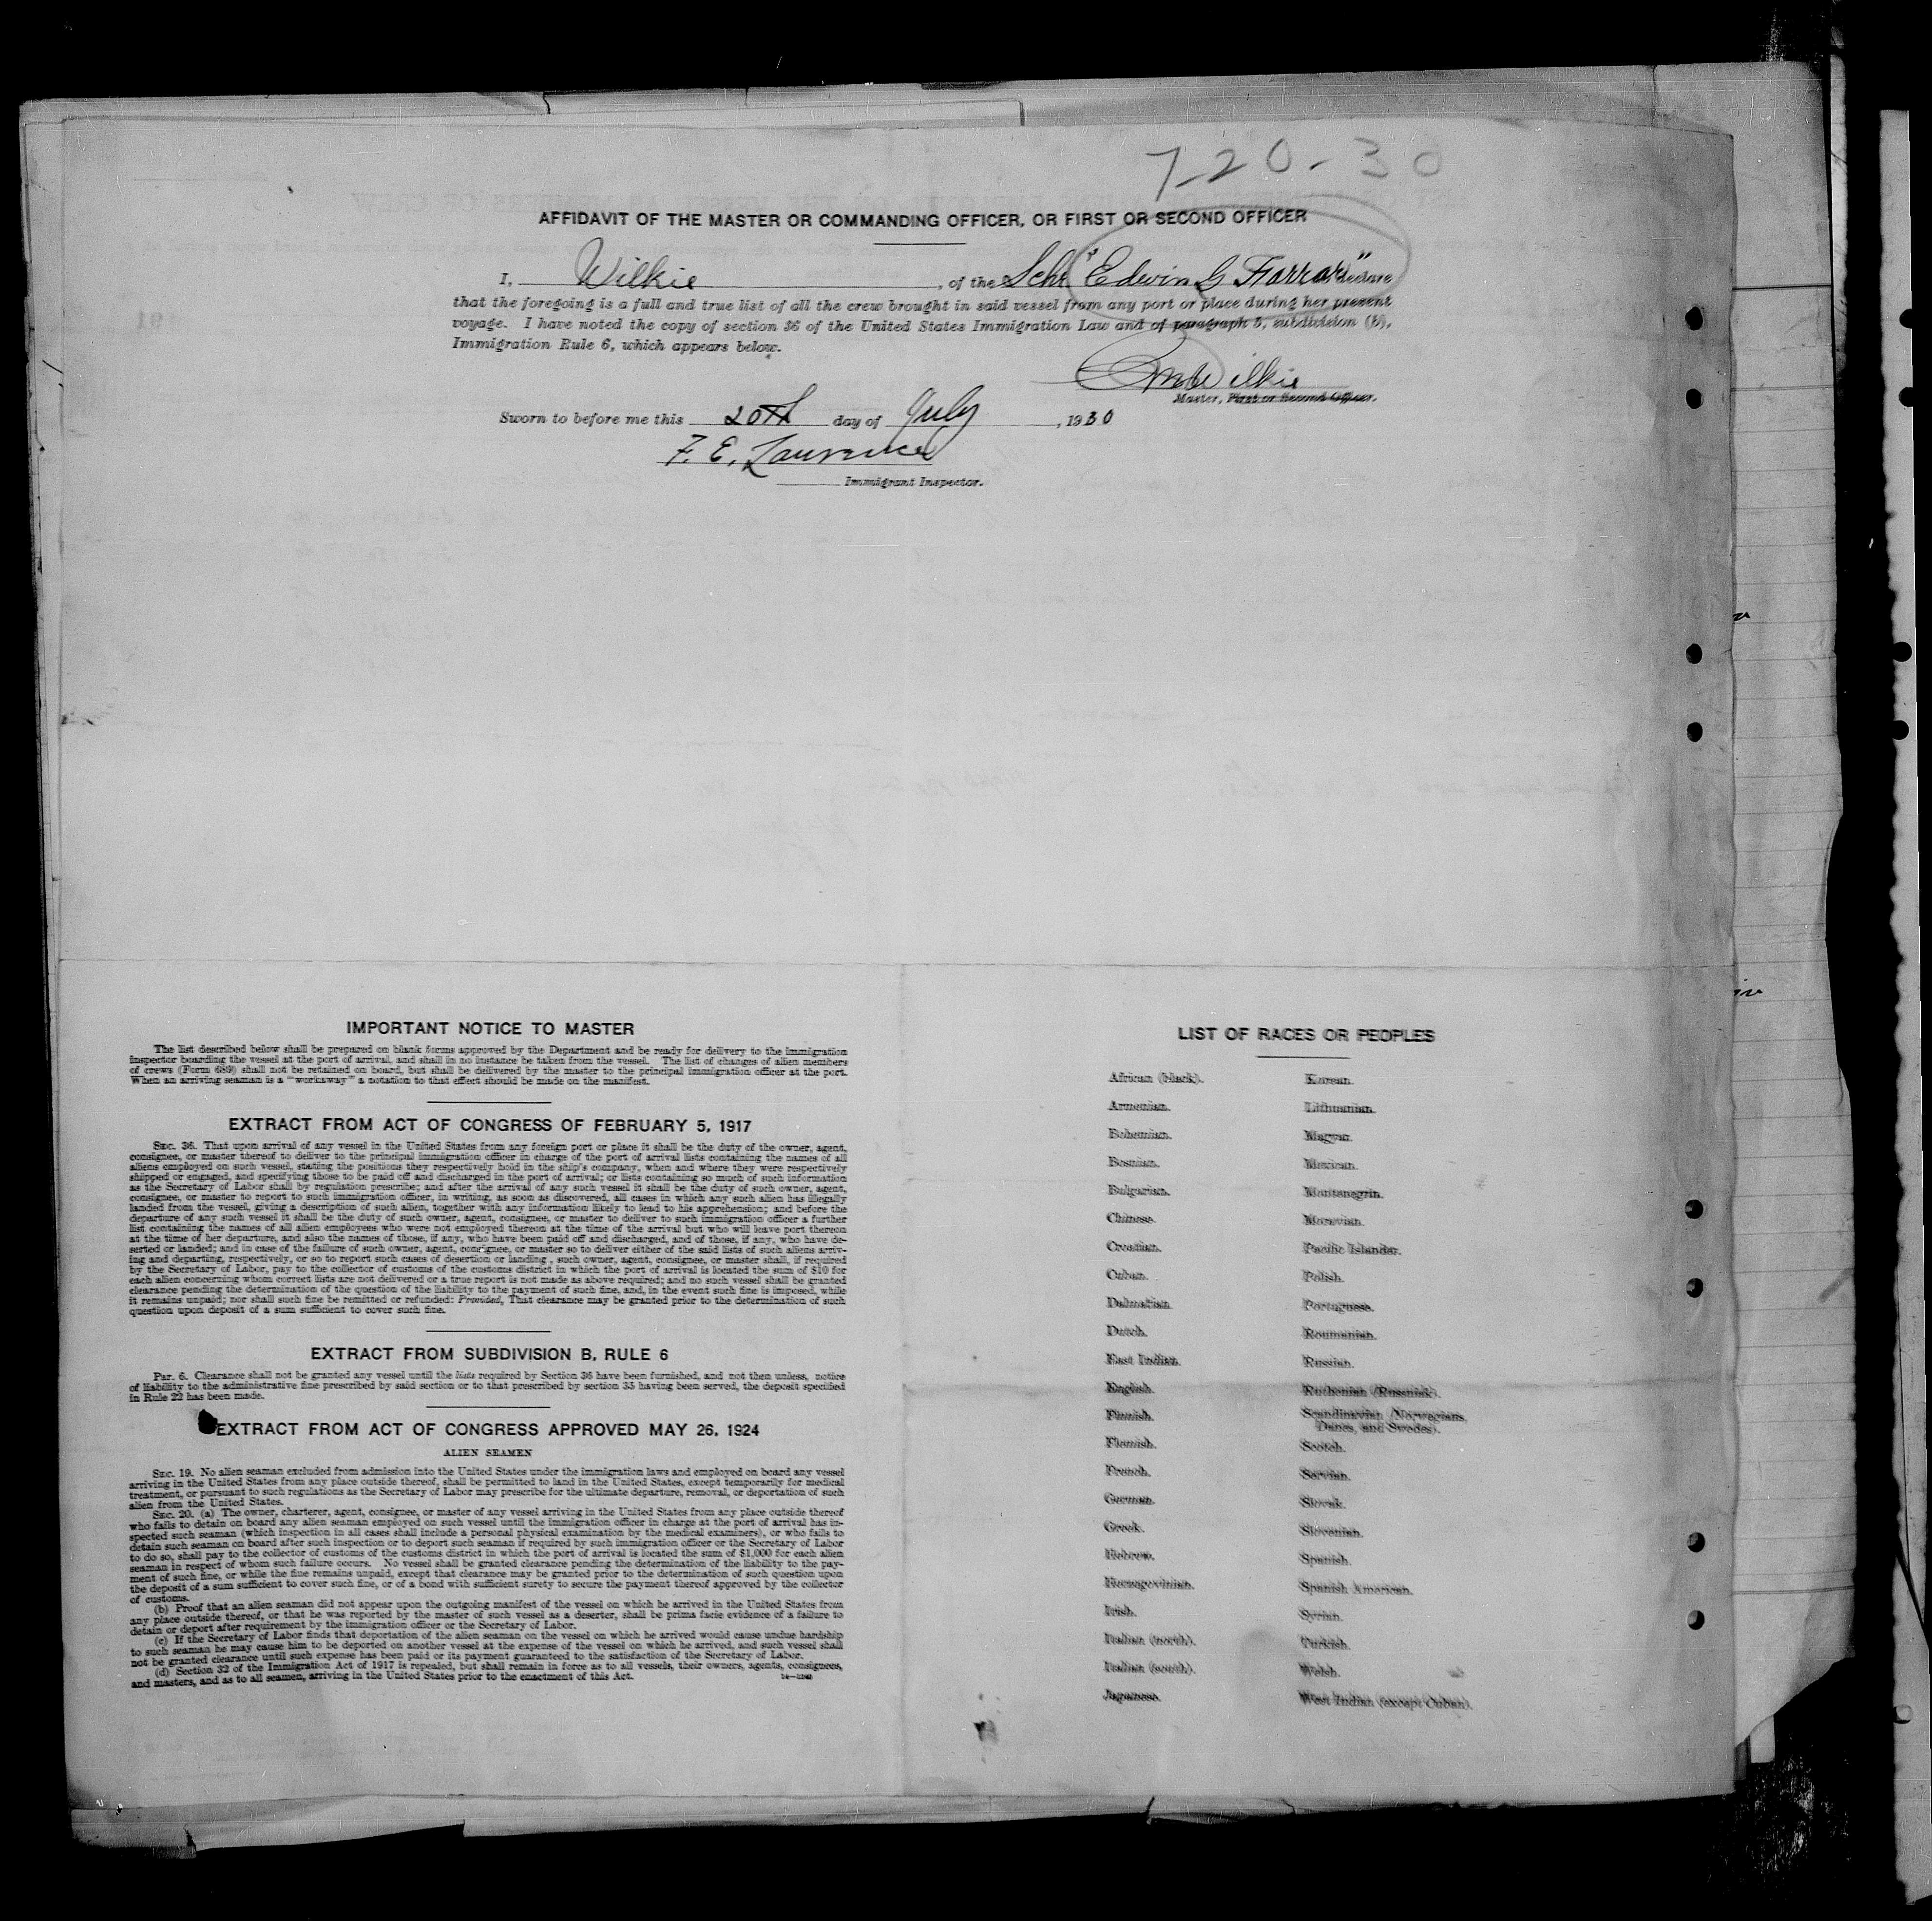 7-20-30
AFFIDAVIT OF THE MASTER OR COMMANDING OFFICER, OR FIRST OR SECOND OFFICER
I, Wilkie, of the Schr "Edwin G Farrar" declare
that the foregoing is a full and true list of all the crew brought in said vessel from any port or place during her present
voyage. I have noted the copy of section 36 of the United States Immigration Law and of paragraph 5, subdivision (b),
Immigration Rule 6, which appears below.
Wilkie
Master, First or Second Officer.
Sworn to before me this 20th day of July, 1930
F. E. Lawrence
Immigrant Inspector.
IMPORTANT NOTICE TO MASTER
The list described below shall be prepared on blank forms approved by the Department and be ready for delivery to the immigration
inspector boarding the vessel at the port of arrival, and shall in no instance be taken from the vessel. The list of changes of alien members
of crews (Form 689) shall not be retained on board, but shall be delivered by the master to the principal immigration officer at the port.
When an arriving seaman is a "workaway" a notation to that effect should be made on the manifest.
EXTRACT FROM ACT OF CONGRESS OF FEBRUARY 5, 1917
SEC. 36. That upon arrival of any vessel in the United States from any foreign port or place it shall be the duty of the owner, agent,
consignee, or master thereof to deliver to the principal immigration officer in charge of the port of arrival lists containing the names of all
aliens employed on such vessel, stating the positions they respectively hold in the ship's company, when and where they were respectively
shipped or engaged, and specifying those to be paid off and discharged in the port of arrival; or lists containing so much of such information
as the Secretary of Labor shall by regulation prescribe; and after the arrival of any such vessel it shall be the duty of such owner, agent,
consignee, or master to report to such immigration officer, in writing, as soon as discovered, all cases in which any such alien has illegally
landed from the vessel, giving a description of such alien, together with any information likely to lead to his apprehension; and before the
departure of any such vessel it shall be the duty of such owner, agent, consignee, or master to deliver to such immigration officer a further
list containing the names of all alien employees who were not employed thereon at the time of the arrival but who will leave port thereon
at the time of her departure, and also the names of those, if any, who have been paid off and discharged, and of those, if any, who have de-
serted or landed; and in case of the failure of such owner, agent, consignee, or master so to deliver either of the said lists of such aliens arriv-
ing and departing, respectively, or so to report such cases of desertion or landing, such owner, agent, consignee, or master shall, if required
by the Secretary of Labor, pay to the collector of customs of the customs district in which the port of arrival is located the sum of $10 for
each alien concerning whom correct lists are not delivered or a true report is not made as above required; and no such vessel shall be granted
clearance pending the determination of the question of the liability to the payment of such fine, and, in the event such fine is imposed, while
it remains unpaid; nor shall such fine be remitted or refunded: Provided, That clearance may be granted prior to the determination of such
question upon deposit of a sum sufficient to cover such fine.
EXTRACT FROM SUBDIVISION B, RULE 6
PAR. 6. Clearance shall not be granted any vessel until the lists required by Section 36 have been furnished, and not then unless, notice
of liability to the administrative fine prescribed by said section or to that prescribed by section 35 having been served, the deposit specified
in Rule 22 has been made.
EXTRACT FROM ACT OF CONGRESS APPROVED MAY 26, 1924
ALIEN SEAMEN
SEC. 19. No alien seaman excluded from admission into the United States under the immigration laws and employed on board any vessel
arriving in the United States from any place outside thereof, shall be permitted to land in the United States, except temporarily for medical
treatment, or pursuant to such regulations as the Secretary of Labor may prescribe for the ultimate departure, removal, or deportation of such
alien from the United States.
SEC. 20. (a) The owner, charterer, agent, consignee, or master of any vessel arriving in the United States from any place outside thereof
who fails to detain on board any alien seaman employed on such vessel until the immigration officer in charge at the port of arrival has in-
spected such seaman (which inspection in all cases shall include a personal physical examination by the medical examiners), or who fails to
detain such seaman on board after such inspection or to deport such seaman if required by such immigration officer or the Secretary of Labor
to do so, shall pay to the collector of customs of the customs district in which the port of arrival is located the sum of $1,000 for each alien
seaman in respect of whom such failure occurs. No vessel shall be granted clearance pending the determination of the liability to the pay-
ment of such fine, or while the fine remains unpaid, except that clearance may be granted prior to the determination of such question upon
the deposit of a sum sufficient to cover such fine, or of a bond with sufficient surety to secure the payment thereof approved by the collector
of customs.
(b) Proof that an alien seaman did not appear upon the outgoing manifest of the vessel on which he arrived in the United States from
any place outside thereof, or that he was reported by the master of such vessel as a deserter, shall be prima facie evidence of a failure to
detain or deport after requirement by the immigration officer or the Secretary of Labor.
(c) If the Secretary of Labor finds that deportation of the alien seaman on the vessel on which he arrived would cause undue hardship
to such seaman he may cause him to be deported on another vessel at the expense of the vessel on which he arrived, and such vessel shall
not be granted clearance until such expense has been paid or its payment guaranteed to the satisfaction of the Secretary of Labor.
(d) Section 32 of the Immigration Act of 1917 is repealed, but shall remain in force as to all vessels, their owners, agents, consignees,
and masters, and as to all seamen, arriving in the United States prior to the enactment of this Act.
LIST OF RACES OR PEOPLES
African (black).
Armenian.
Bohemian.
Bosnian.
Bulgarian.
Chinese.
Croatian.
Cuban.
Dalmatian.
Dutch.
East Indian.
English.
Finnish.
Flemish.
French.
German.
Greek.
Hebrew.
Herzegovinian.
Irish.
Italian (north).
Italian (south).
Japanese.
Korean.
Lithuanian.
Magyar.
Mexican.
Montenegrin.
Moravian.
Pacific Islander.
Polish.
Portuguese.
Roumanian.
Russian.
Ruthenian (Russniak).
Scandinavian (Norwegians,
Danes, and Swedes).
Scotch.
Servian.
Slovak.
Slovenian.
Spanish.
Spanish American.
Syrian.
Turkish.
Welsh.
West Indian (except Cuban).